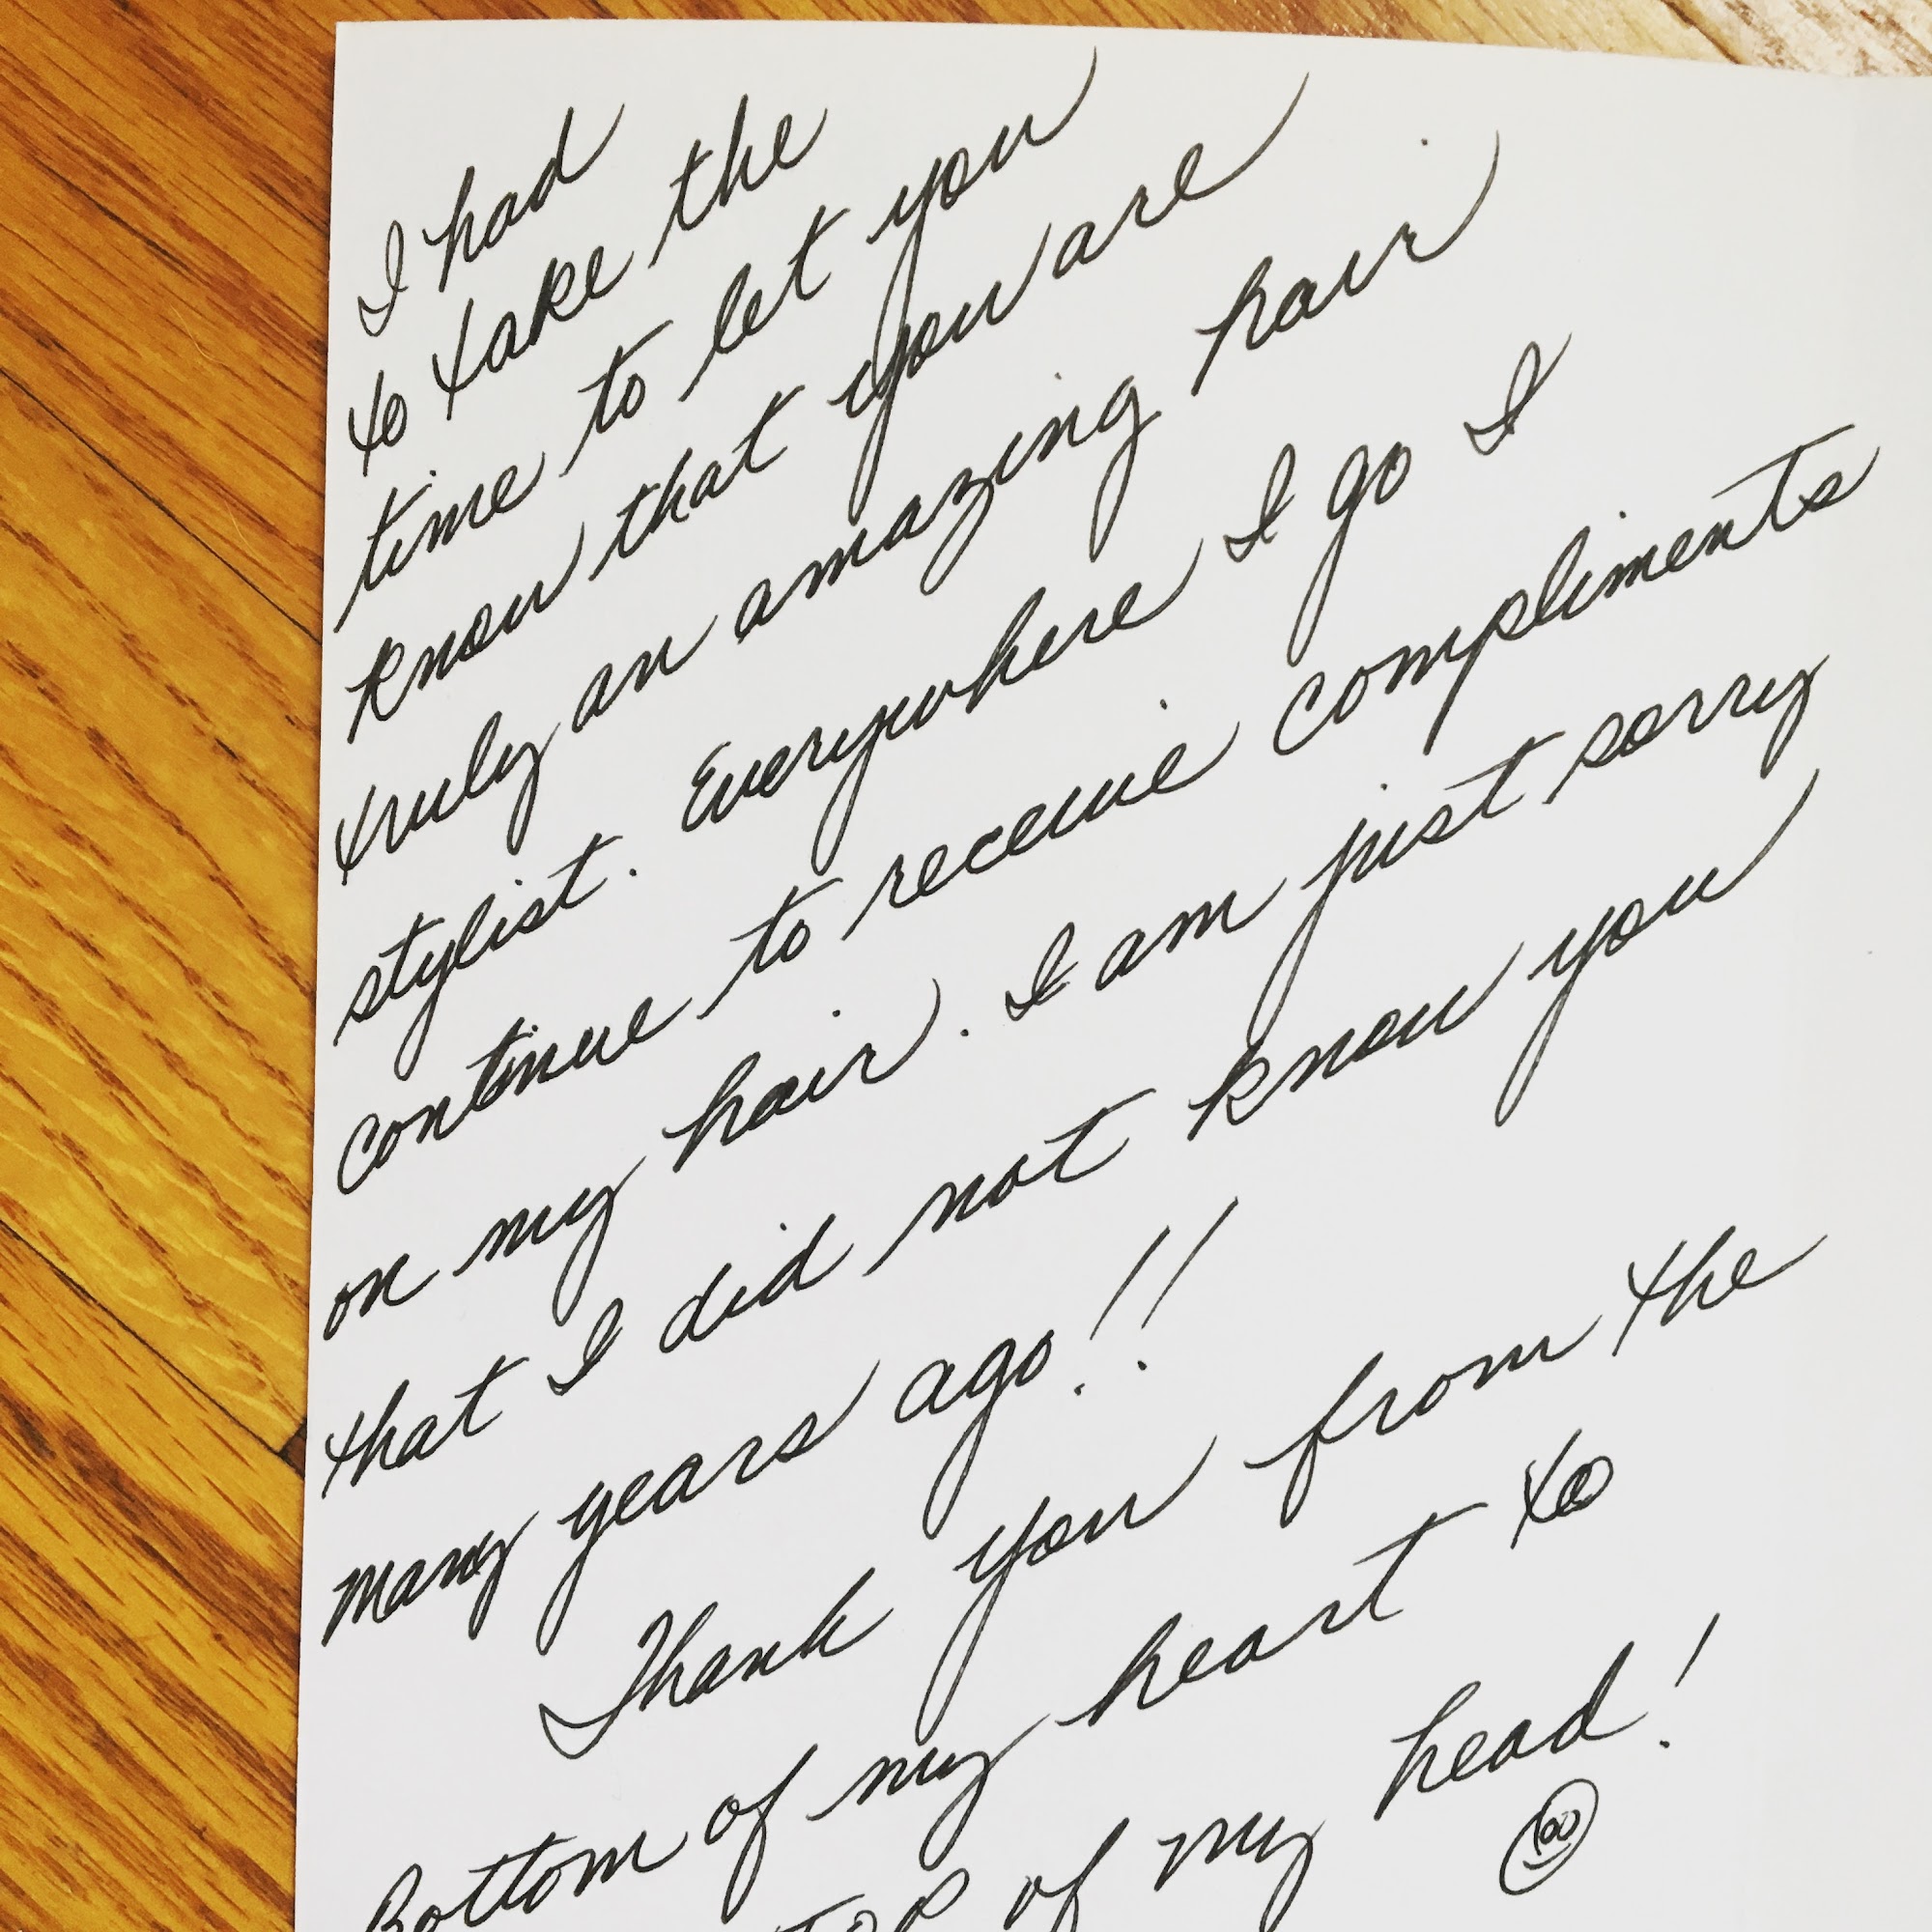 I had
to take the
time to let you
know that you are
truly an amazing hair
stylist. Everywhere I go I
continue to receive compliments
on my hair. I am just sorry
that I did not know you
many years ago!!
Thank you from the
Bottom of my heart to
top of my head!